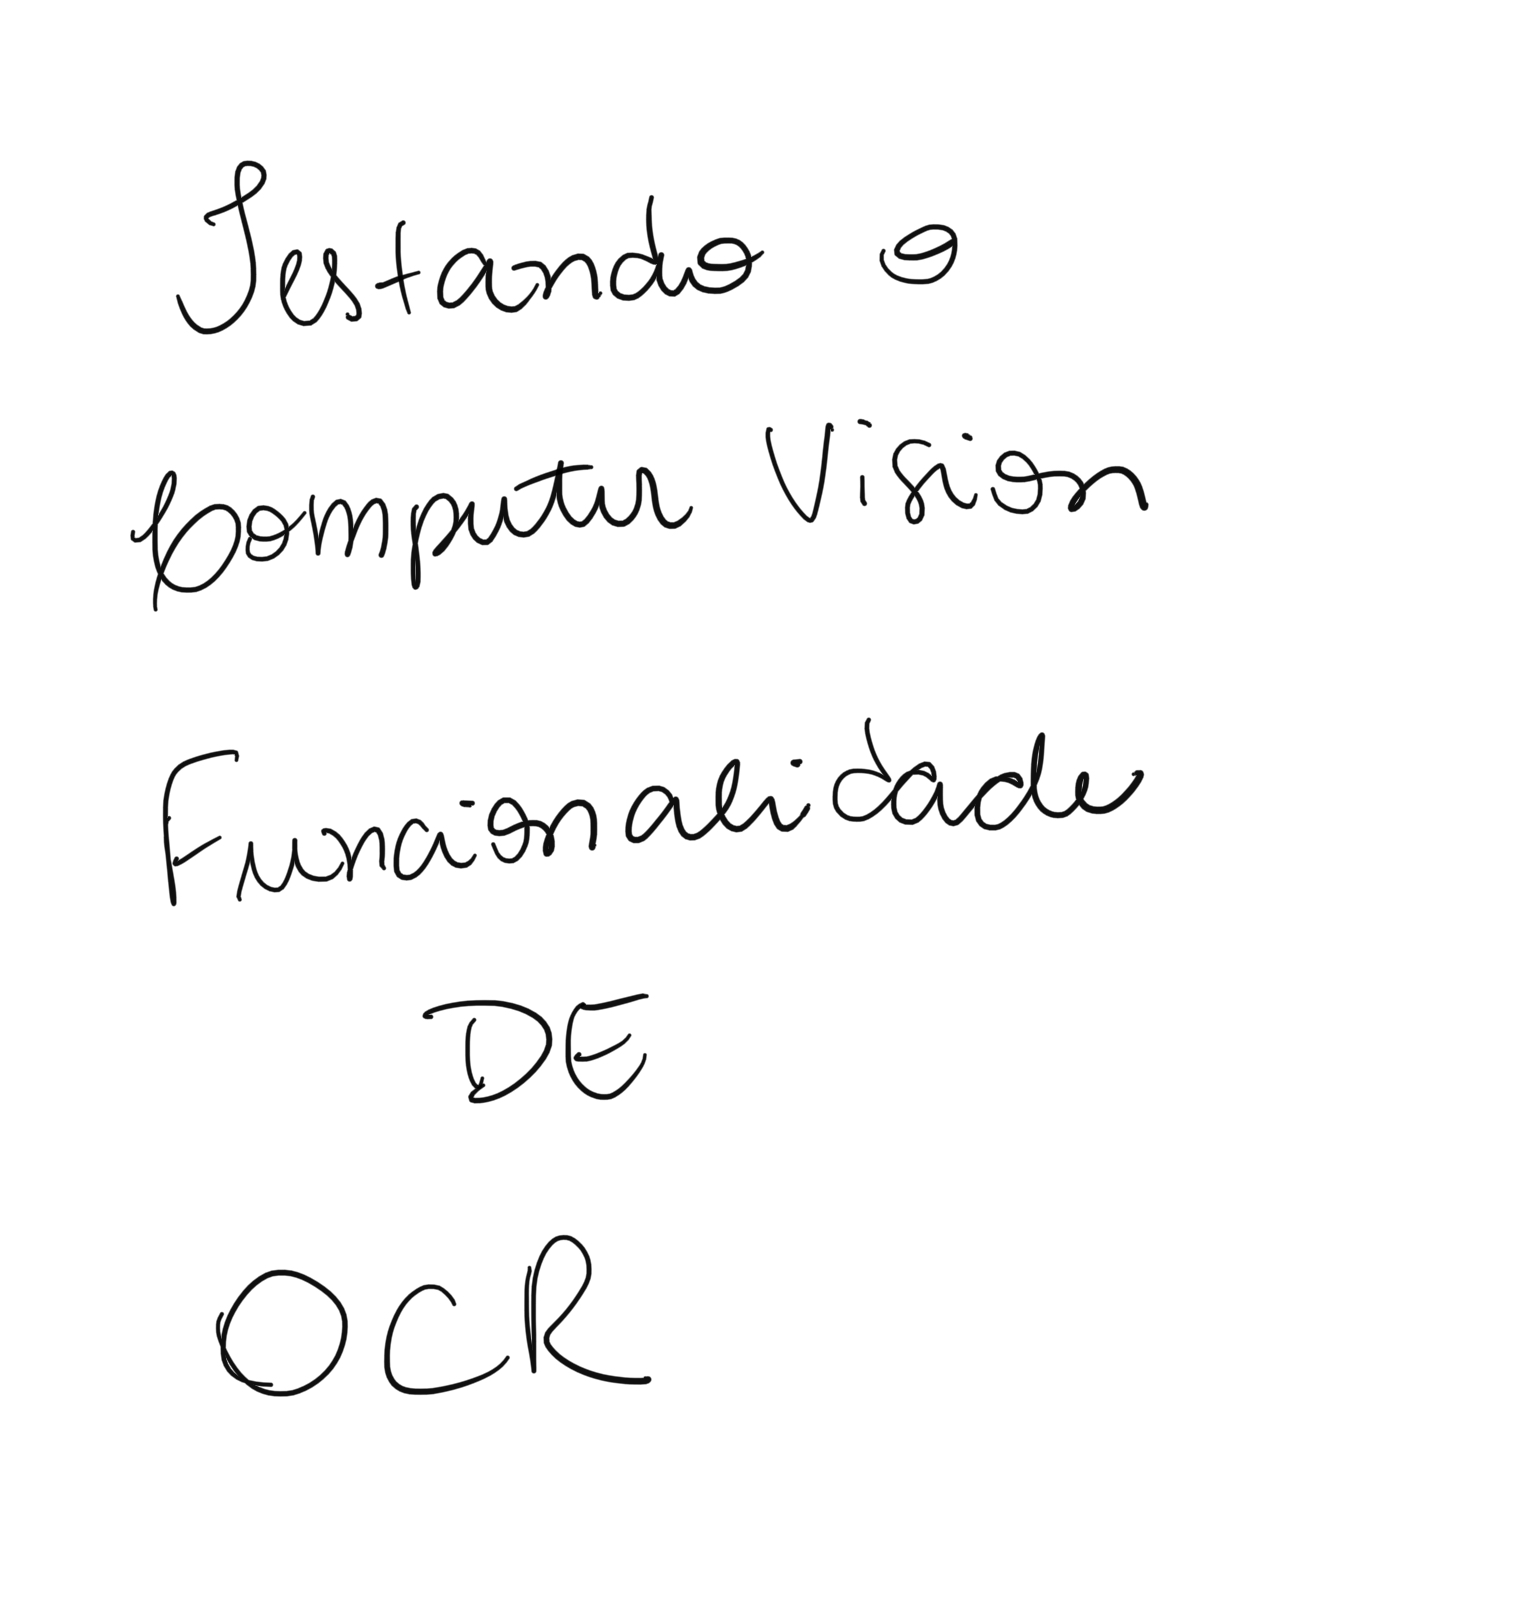 Testando o
Computer Vision
Funcionalidade
DE
OCR